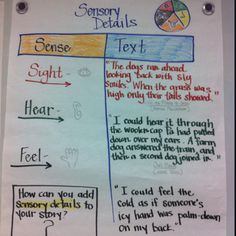 Sensory
Details
Sense
Text
Sight -
"The dogs ran ahead,
looking back with sly
smiles. When the grass was
high only their tails showed."
Hear -
I could hear it through
the woolen cap Pa had pulled
down over my ears. A farm
dog answered the train, and
then a second dog joined in.
Feel -
"I could feel the
cold as if someone's
icy hand was palm-down
on my back."
How can you add
sensory details to
your story?